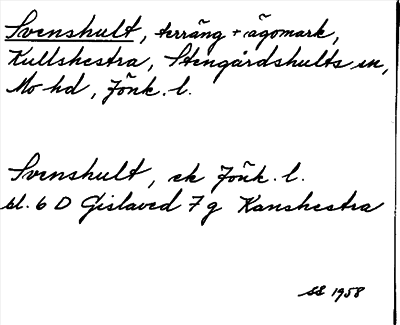 Svenshult, terräng + ägomark,
Kullshestra, Stengårdshults sn,
Mo hd, Jönk. l.
Svenshult, ek Jönk. l.
bl. 6 D Gislaved 7 g Kanshestra
SS 1958